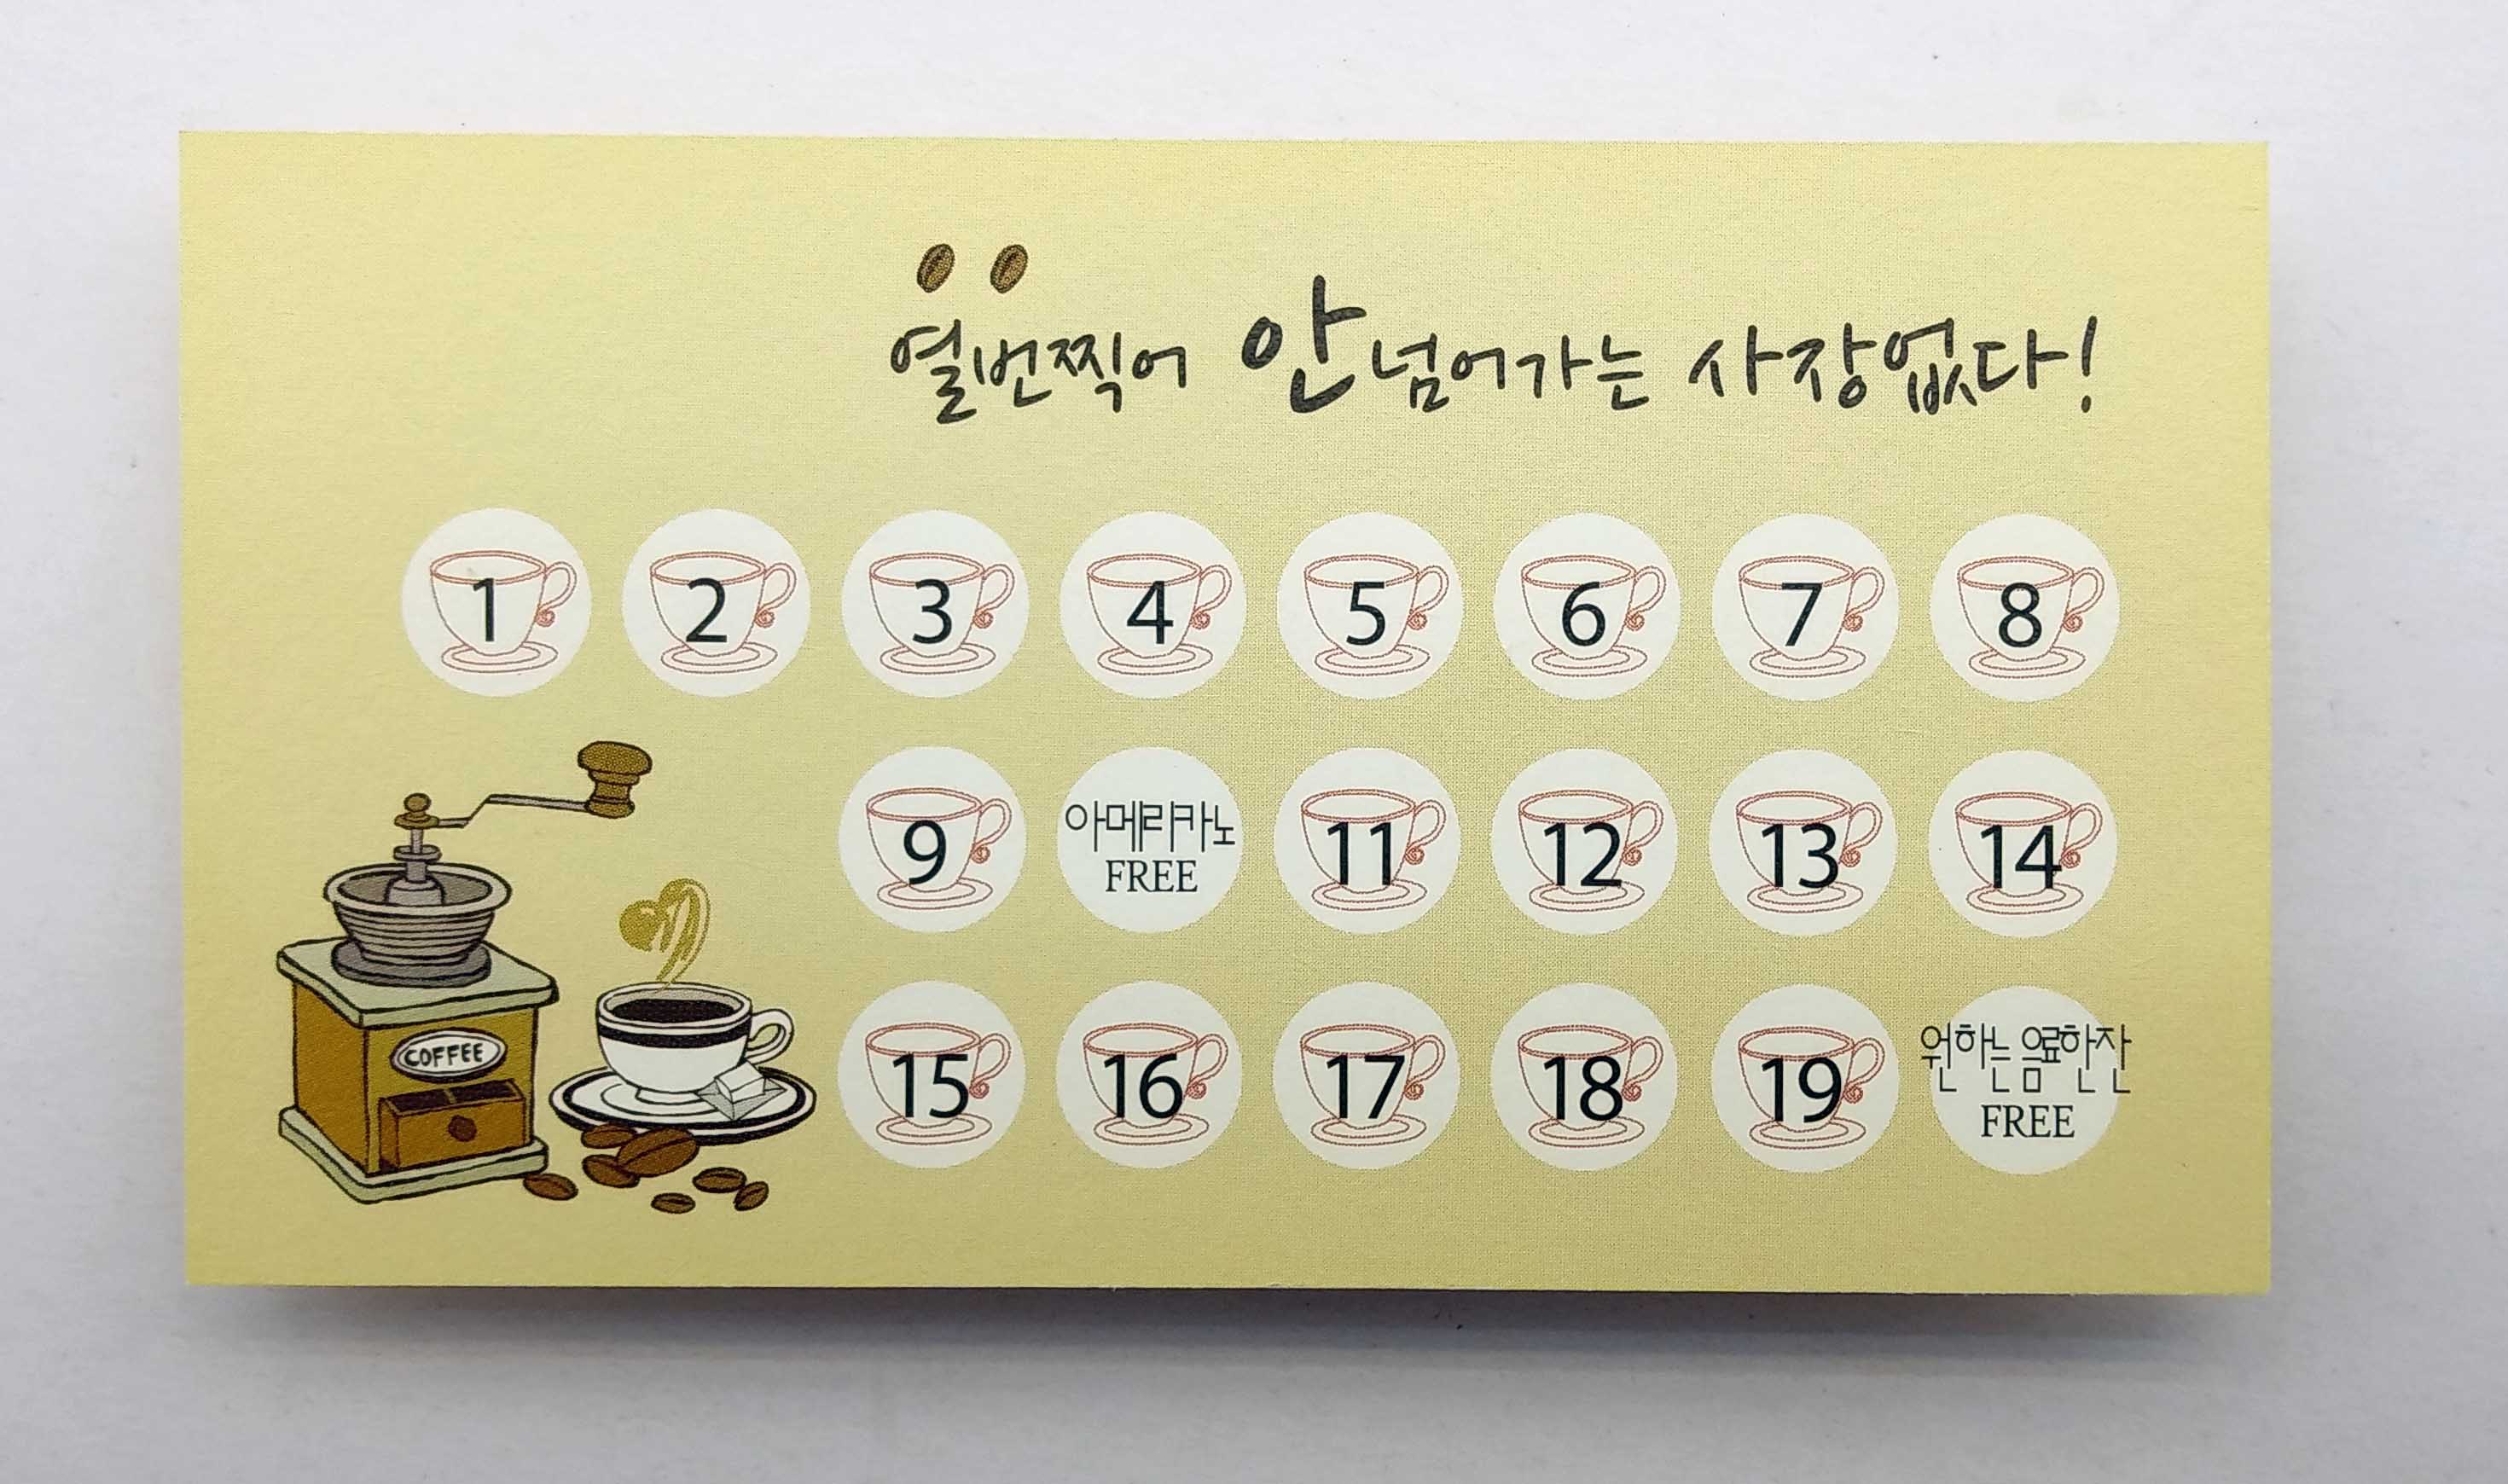 열번찍어 안넘어가는 사장없다!
1 2 3 4 5 6 7 8
9 아메리카노 FREE 11 12 13 14
COFFEE
15 16 17 18 19 원하는 음료한잔 FREE